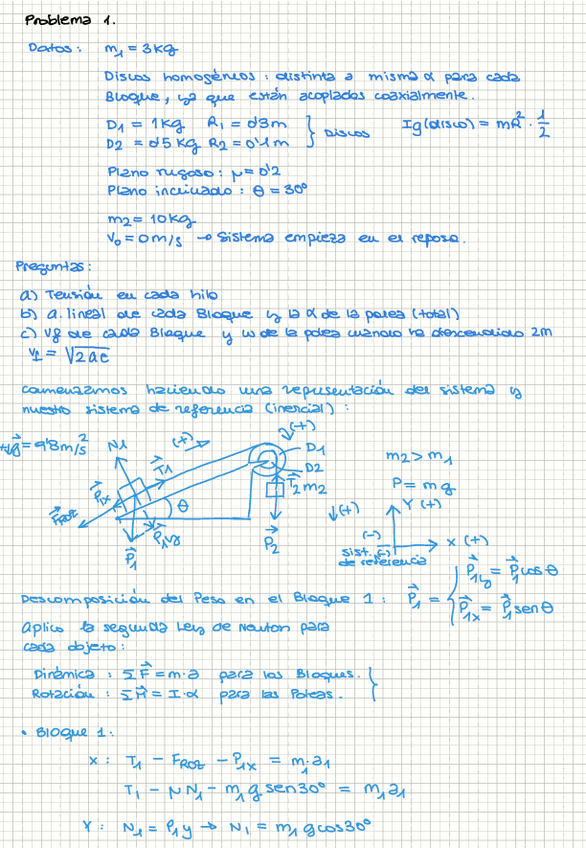 Problema 1.
Datos: m₁ = 3 kg
Discos homogéneos: distinta a misma α para cada
Bloque, ya que están acoplados coaxialmente.
D1 = 1 kg R₁ = 0'3 m
D2 = 0'5 kg R2 = 0'1 m } Discos Ig (disco) = mR² · 1/2
Plano rugoso: μ = 0'2
Plano inclinado: θ = 30°
m2 = 10 kg
V₀ = 0 m/s → Sistema empieza en el reposo.
Preguntas:
a) Tensión en cada hilo
b) a. lineal de cada Bloque y la α de la polea (total)
c) Vf de cada Bloque y ω de la polea cuando ha descendido 2m
Vf = √2ae
Comenzamos haciendo una representación del sistema y
nuestro sistema de referencia (inercial):
g = 9'8 m/s² N1 (+) T1 (+) D1 D2
P1x FROZ θ P1y P1 T2 m2 P2
m2 > m1
P = mg
↓(+) Y (+) X (+) (-) (-)
sist. de referencia
Descomposición del Peso en el Bloque 1: P₁ = { P1y = P₁ cos θ
P1x = P₁ sen θ
Aplico la segunda Ley de Newton para
cada objeto:
Dinámica: ΣF = m·a para los Bloques.
Rotación: ΣM = I·α para las Poleas. }
• Bloque 1:
X: T₁ - FROZ - P1x = m₁·a₁
T₁ - μN₁ - m₁g sen30° = m₁a₁
Y: N₁ = P₁y → N₁ = m₁g cos30°